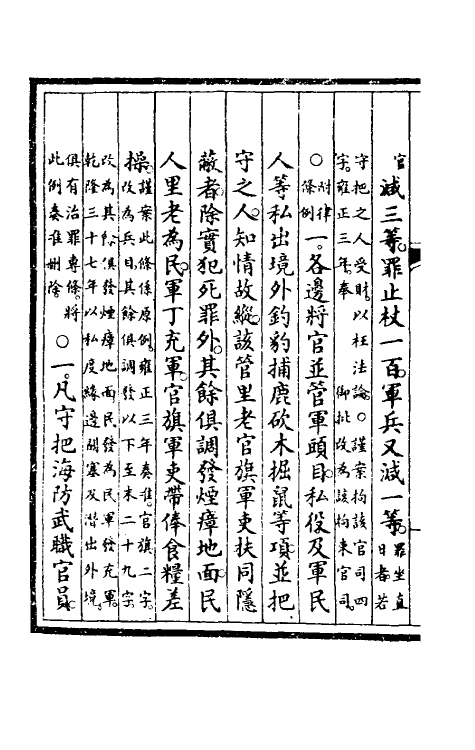 官減三等。罪止杖一百。軍兵又減一等。罪坐直日者若
守把之人受財。以枉法論。○謹案拘該官司四
字。雍正三年。奉 御批改為該拘束官司。
○附律條例 一。各邊將官並管軍頭目。私役及軍民
人等私出境外釣豹捕鹿砍木掘鼠等項。並把
守之人。知情故縱。該管里老官旗軍吏扶同隱
蔽者。除實犯死罪外。其餘俱調發煙瘴地面。民
人里老為民。軍丁充軍。官旗軍吏帶俸食糧差
操。謹案此條係原例。雍正三年奏准。官旗二字。
改為兵目。其餘俱調發以下至末二十九字。
改為其餘俱發煙瘴地面。民發為民。軍發充軍。
乾隆三十七年。以私度緣邊關塞及潛出外境。
俱有治罪專條。將
此例奏准刪除 ○一。凡守把海防武職官員。